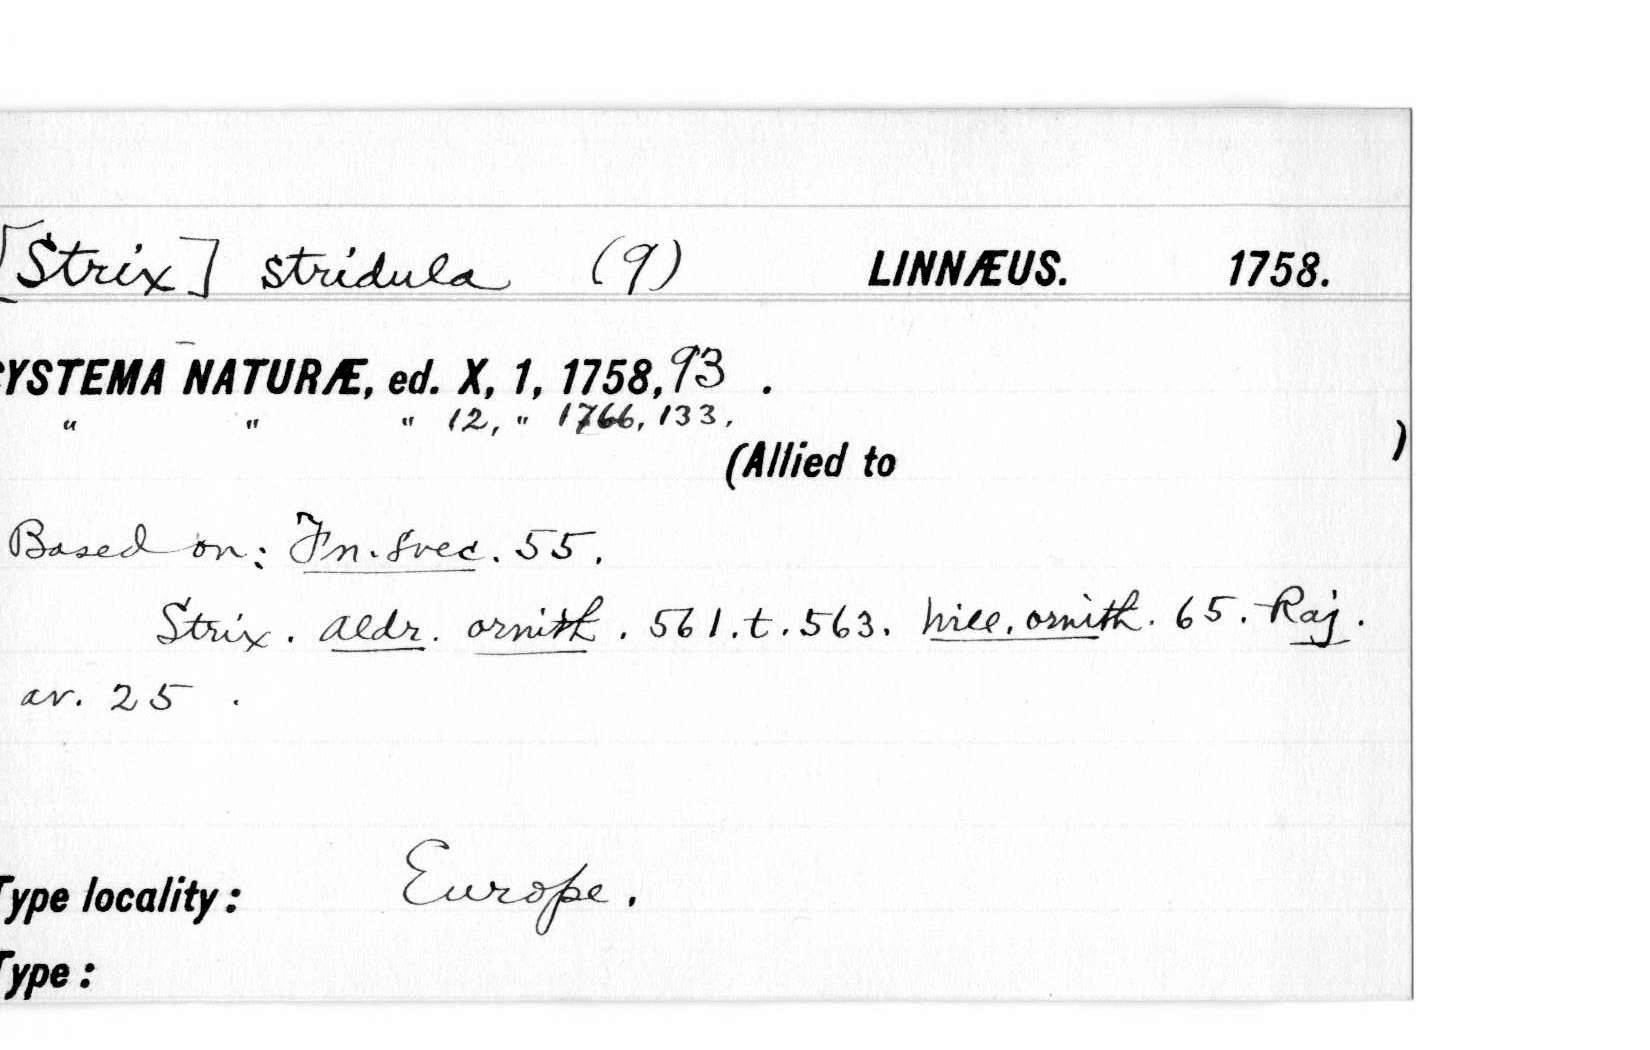 [Strix] stridula (9) LINNÆUS. 1758.
SYSTEMA NATURÆ, ed. X, 1, 1758, 93 .
" " " 12, " 1766, 133,
(Allied to )
Based on: Fn. Svec. 55.
Strix. Aldr. ornith. 561. t. 563. Will. ornith. 65. Raj.
av. 25 .
Type locality: Europe.
Type: